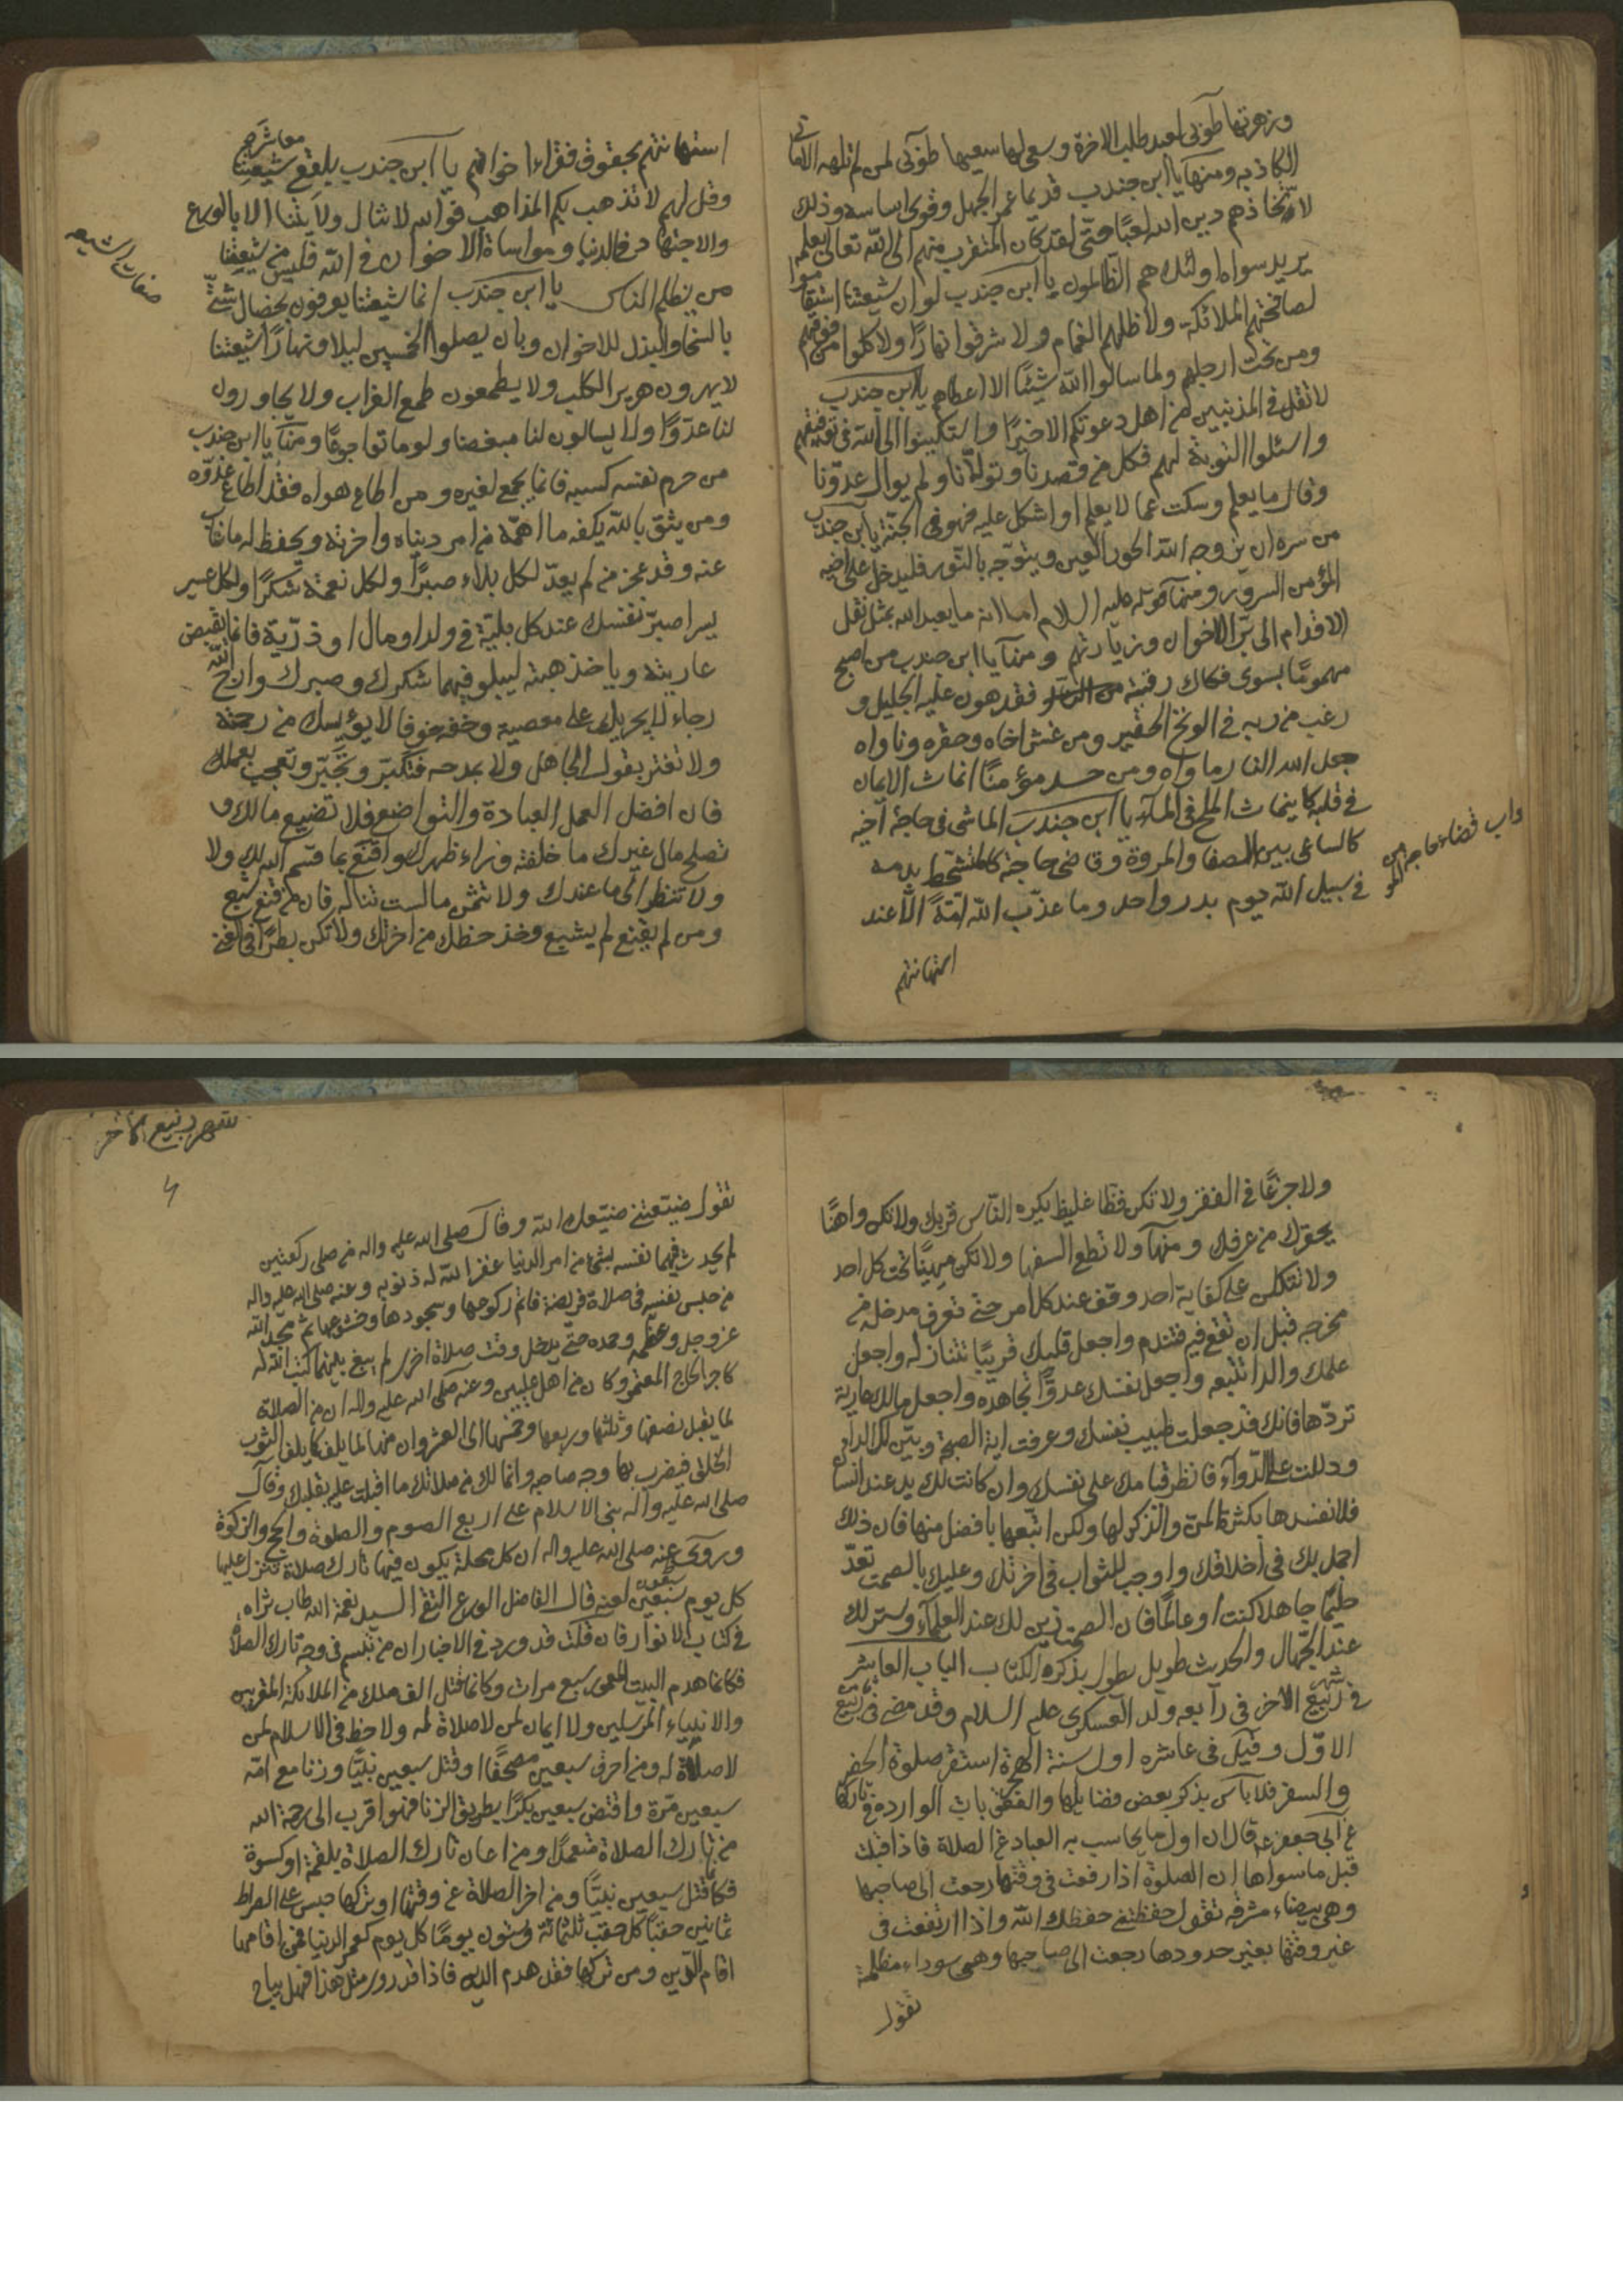 وزهرتها طوبى لعبد طلب الاخرة وسعى لها سعيها طوبى لمن لم تلهه الاماني
الكاذبه ومنها يا ابن جندب قديما عمر الجهل وقوى اساسه وذلك
لاتخاذهم دين الله لعبًا حتى لقد كان المتقرب منهم الى الله تعالى بعلمه
يريد سواه اولئك هم الظالمون يا ابن جندب لو ان شيعتنا استقاموا
لصافحتهم الملائكة ولاظلهم الغمام ولاشرقوا نهارًا ولاكلوا من فوقهم
ومن تحت ارجلهم ولما سالوا الله شيئًا الا اعطاهم يا ابن جندب
لا تقل في المذنبين من اهل دعوتكم الا خيرًا واستكينوا الى الله في توفيقهم
واسئلوا التوبة لهم فكل من قصدنا وتولانا ولم يوال عدوّنا
وقال ما يعلم وسكت عما لا يعلم او اشكل عليه فهو في الجنة يا ابن جندب
من سره ان يزوجه الله الحور العين ويتوّجه بالنّور فليدخل على اخيه
المؤمن السرور ومنها قوله عليه السلام اما انه ما يعبد الله بمثل نقل
الاقدام الى برّ الاخوان وزيارتهم ومنها يا ابن جندب من اصبح
مهمومًا بسوى فكاك رقبته فقد هون عليه الجليل و
رغب من ربه في الوتح الحقير ومن غش اخاه وحقره وناواه
جعل الله النار ماواه ومن حسد مؤمنًا انماث الايمان
في قلبه كما ينماث الملح في الماء يا ابن جندب الماشى في حاجة اخيه
كالساعى بين الصفا والمروة وقاضى حاجته كالمتشحط بدمه
في سبيل الله يوم بدر واحد وما عذّب الله امّةً الّا عند
استهانتهم
قضاء حاجه المؤمن
استهانتهم بحقوق فقراء اخوانهم يا ابن جندب بلغ معاشر شيعتنا
وقل لهم لا تذهب بكم المذاهب فوالله لا تنال ولايتنا الا بالورع
والاجتهاد في الدنيا ومواساة الاخوان في الله فليس من شيعتنا
من يظلم الناس يا ابن جندب انما شيعتنا يعرفون بخصال شتّى
بالسخا والبذل للاخوان وبان يصلوا الخمسين ليلا ونهارًا شيعتنا
لا يهرون هرير الكلب ولا يطمعون طمع الغراب ولا يجاورون
لنا عدوًّا ولا يسالون لنا مبغضا ولو ماتوا جوعًا ومنها يا ابن جندب
من حرم نفسه كسبه فانما يجمع لغيره ومن اطاع هواه فقد اطاع عدوّه
ومن يثق بالله يكفه ما اهمّه من امر دنياه واخرته ويحفظ له ما غاب
عنه وقد عجز من لم يعدّ لكل بلاء صبرًا ولكل نعمة شكرًا ولكل عسر
يسرا صبّر نفسك عند كل بليّة في ولد او مال او ذرّية فانما يقبض
عاريته وياخذ هبته ليبلو فيهما شكرك وصبرك وارج الله
رجاء لا يجريك على معصيه وخفه خوفًا لا يؤيسك من رحمته
ولا تغتر بقول الجاهل ولا بمدحه فتكبّر وتجبّر وتعجب بعملك
فان افضل العمل العبادة والتواضع فلا تضيع مالك و
تصلح مال غيرك ما خلفته وراء ظهرك واقنع بما قسم الله لك ولا
ولا تنظر الّى ما عندك ولا تتمنّ ما لست تناله فان من قنع شبع
ومن لم يقنع لم يشبع وخذ حظك من اخرتك ولا تكن بطرًا في الغنى
صفات الشيعه
شهر ربيع الاخر
ولا جزعًا في الفقر ولا تكن فظّا غليظا يكره النّاس قربك ولا تكن واهنًا
يحقرك من عرفك ومنها ولا تطع السفها ولا تكن مهينًا تحت كل احد
ولا تتكلن على كفاية احد وقف عند كل امر حتى تعرف مدخله من
مخرجه قبل ان تقع فيه فتندم واجعل قلبك قريبًا تنازله واجعل
علمك والدا تتبعه واجعل نفسك عدوًّا تجاهده واجعل مالك عارية
تردّها فانك قد جعلت طبيب نفسك وعرفت اية الصحة وبيّن لك الداء
ودللت على الدّواء فانظر قيامك على نفسك وان كانت لك يد عند انسان
فلا تفسدها بكثرة المنّ والذكر لها ولكن اتبعها بافضل منها فان ذلك
اجمل بك في اخلاقك واوجب للثواب في اخرتك وعليك بالصمت تعدّ
حليمًا جاهلا كنت او عالمًا فان الصمت زين لك عند العلماء وستر لك
عند الجّهال والحديث طويل يطول بذكره الكتاب الباب العاشر
في شهر ربيع الاخر في رابعه ولد العسكرى عليه السلام وقد مضى في ربيع
الاوّل وقيل في عاشره اول سنة الهجرة استقر صلوة الحضر
والسفر فلا باس بذكر بعض فضايلها والعقوبات الواردة في تاركها
عن ابى جعفر ع قال ان اول ما يحاسب به العباد عن الصلاة فاذا قبلت
قبل ما سواها ان الصلوة اذا رفعت في وقتها رجعت الى صاحبها
وهي بيضاء مشرقه تقول حفظتنى حفظك الله واذا ارتفعت في
غير وقتها بغير حدودها رجعت الى صاحبها وهى سوداء مظلمة
تقول
تقول ضيّعتنى ضيّعك الله وقال صلى الله عليه واله من صلى ركعتين
لم يحدث فيهما نفسه بشىء من امر الدنيا غفر الله له ذنوبه وعنه صلى الله عليه واله
من حبس نفسه في صلاة فريضة فاتم ركوعها وسجودها وخشوعها ثم مجد الله
عز وجل وعظمه وحمده حتّى يدخل وقت صلاة اخرى لم يبغ بينهما كتب الله له
كاجر الحاج المعتمر وكان من اهل عليين وعنه صلى الله عليه واله ان من الصلاة
لما يقبل نصفها وثلثها وربعها وخمسها الى العشر وان منها لما يلف كما يلف الثوب
الخلق فيضرب بها وجه صاحبها وانما لك من صلاتك ما اقبلت عليه بقلبك وقال
صلى الله عليه وآله بنى الاسلام على اربع الصوم والصلوة والحج والزكوة
وروى عنه صلى الله عليه واله ان كل محلة يكون فيها تارك صلاة تنزل عليها
كل يوم سبعون لعنه قال الفاضل الورع التقى السيد نعمة الله طاب ثراه
في كتاب الانوار فان قلت قد ورد في الاخبار ان من تبسم في وجه تارك الصلاة
فكانما هدم البيت المعمور سبع مرات وكانما قتل الف ملك من الملائكة المقربين
والانبياء المرسلين ولا ايمان لمن لا صلاة له ولا حظ في الاسلام لمن
لا صلاة له ومن احرق سبعين مصحفًا وقتل سبعين نبيًّا وزنا مع امّه
سبعين مرّة وافتض سبعين بكرًا بطريق الزنا فهو اقرب الى رحمة الله
من تارك الصلاة متعمدًا ومن اعان تارك الصلاة بلقمة او كسوة
فكانما قتل سبعين نبيًّا ومن اخر الصلاة عن وقتها او تركها حبس على الصراط
ثمانين حقبًا كل حقب ثلثمائة وستون يومًا كل يوم كعمر الدنيا فمن اقامها
اقام الدّين ومن تركها فقد هدم الدين فاذا قد ورد مثل هذا فهل يباح